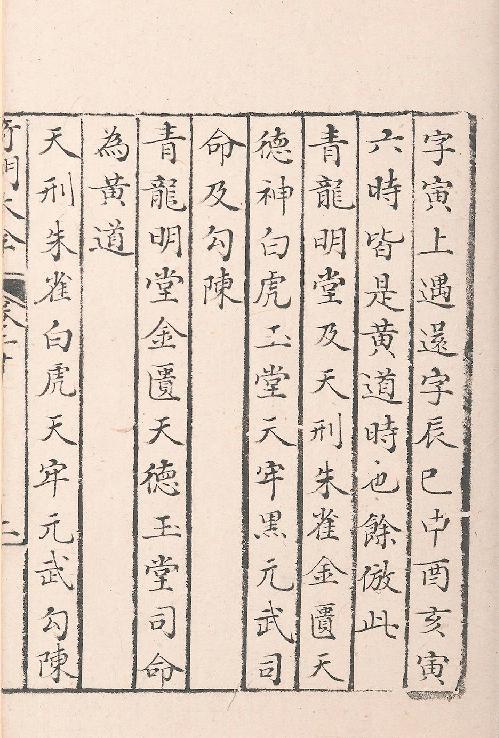 字寅上遇還字辰巳申酉亥寅
六時皆是黃道時也餘倣此
青龍明堂及天刑朱雀金匱天
德神白虎玉堂天牢黑元武司
命及勾陳
青龍明堂金匱天德玉堂司命
為黃道
天刑朱雀白虎天牢元武勾陳
奇門大全